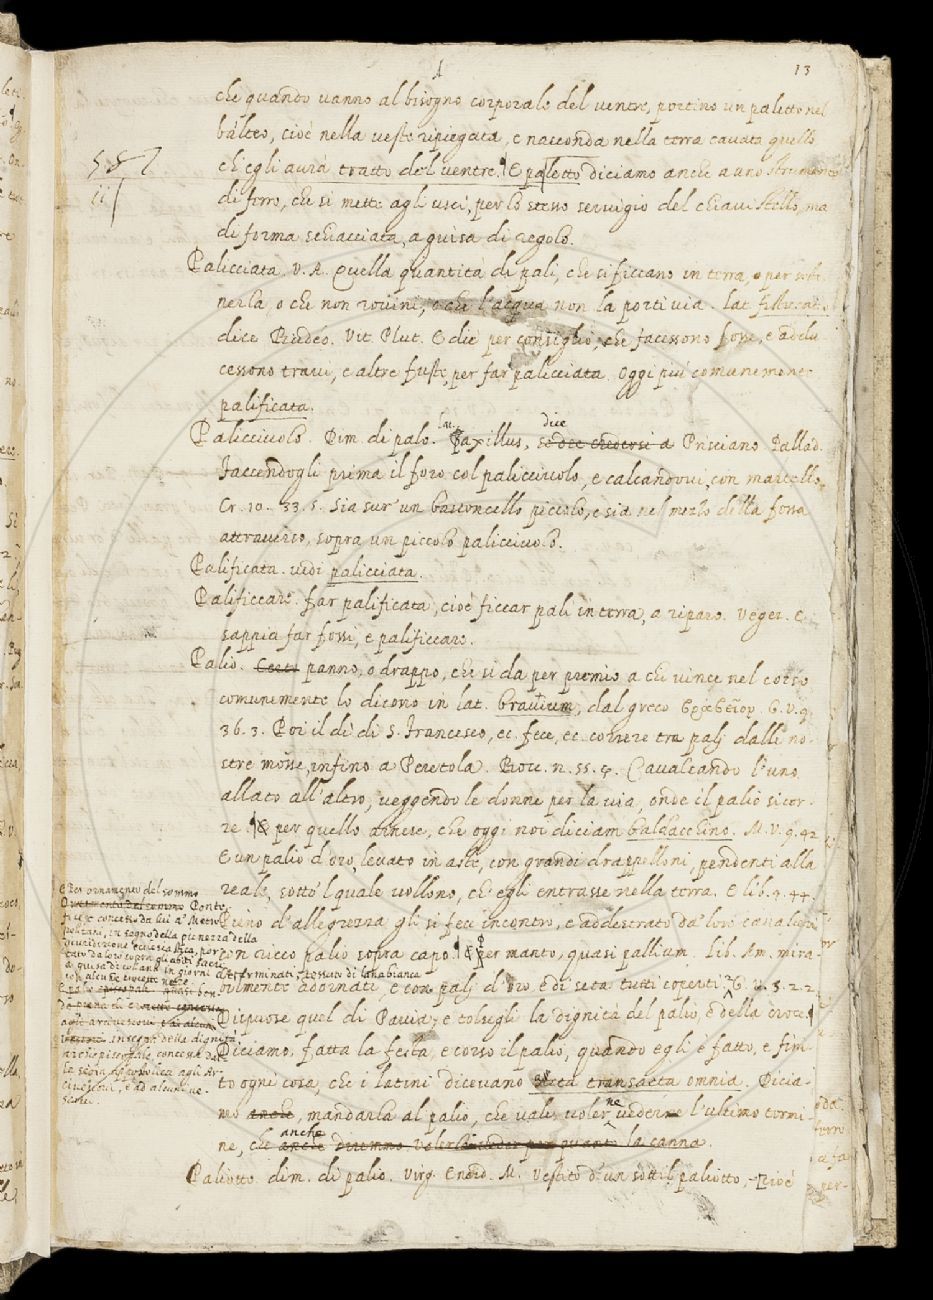 13
che quando uanno al bisogno corporale del uentre, portino un paletto nel
balteo, cioè nella ueste ripiegata, e nasconda nella terra cauata quello
ch'egli aurà tratto del uentre. E paletto diciamo anche a uno strumento
di ferro, che si mette agli usci, per lo stesso seruigio del chiauistello, ma
di forma schiacciata, a guisa di regolo.
Palicciata. V. A. Quella quantità di pali, che si ficcano in terra, per
nerla, o che non rouini, o che l'acqua non la porti uia. lat.
dice Budeo. Vit. Plut. E diè per consiglio, che facessono fossi, e addu-
cessono traui, e altre fuste, per far palicciata. Oggi più comunemente
palificata.
Palicciuolo. Dim. di palo. lat. Paxillus, dice Prisciano Pallad.
Faccendogli prima il foro col palicciuolo, e calcandoui con martello
Cr. 10. 33. 5. Sia sur un bastoncello piccolo, e sia nel mezzo della fossa
attrauerso, sopra un piccolo palicciuolo.
Palificata. uedi palicciata.
Palificcare. far palificata, cioè ficcar pali in terra, a riparo. Veger. E
sappia far fossi, e palificcare.
Palio. panno, o drappo, che si da per premio a chi uince nel corso
comunemente lo dicono in lat. brauium, dal greco βραβεῖον. G. V. 9.
36. 3. Poi il dì di S. Francesco, ec. fece, ec. correre tre palj dalle no-
stre mosse, infino a Peretola. Bocc. n. 55. 4. Caualcando l'uno
allato all'altro, ueggendo le donne per la uia, onde il palio si cor-
re. E per quello arnese, che oggi noi diciam baldacchino. M. V. 9. 42
E un palio d'oro, leuato in aste, con grandi drappelloni, pendenti alla
reale, sotto 'l quale uollono, ch'egli entrasse nella terra. E lib. 9. 44.
Pieno d'allegrezza gli si fece incontro, e addestrato da' loro
con ricco palio sopra capo. E per manto, quasi pallium. Lib. Am. mira-
bilmente adornati, e con palj d'oro e di seta tutti coperti. G. V. 5. 2. 2
Dispuose quel di Pauia, e tolsegli la dignità del palio, e della croce.
Diciamo, fatta la festa, e corso il palio, quando egli è fatto, e fini-
to ogni cosa, che i latini diceuano acta transacta omnia. Dicia-
mo anche, mandarla al palio, che uale uolerne ueder l'ultimo termi-
ne, che anche diremmo la canna.
Paliotto. dim. di palio. Virg. Eneid. M. Vestito d'un sottil paliotto, cioè
E Per ornamento del sommo
Ponte-
fice concesso da lui a' Metro-
politani, in segno della pienezza della
giuridizione ecclesiastica, por-
tato da loro sopra gli abiti sacri
a guisa di collana in giorni
determinati tessuto di lana bianca
con alcune crocette nere
in segno della dignità
archiepiscopale, concessa dal-
la sedia Apostolica agli Ar-
ciuescoui, e ad alcuni ue-
scoui.